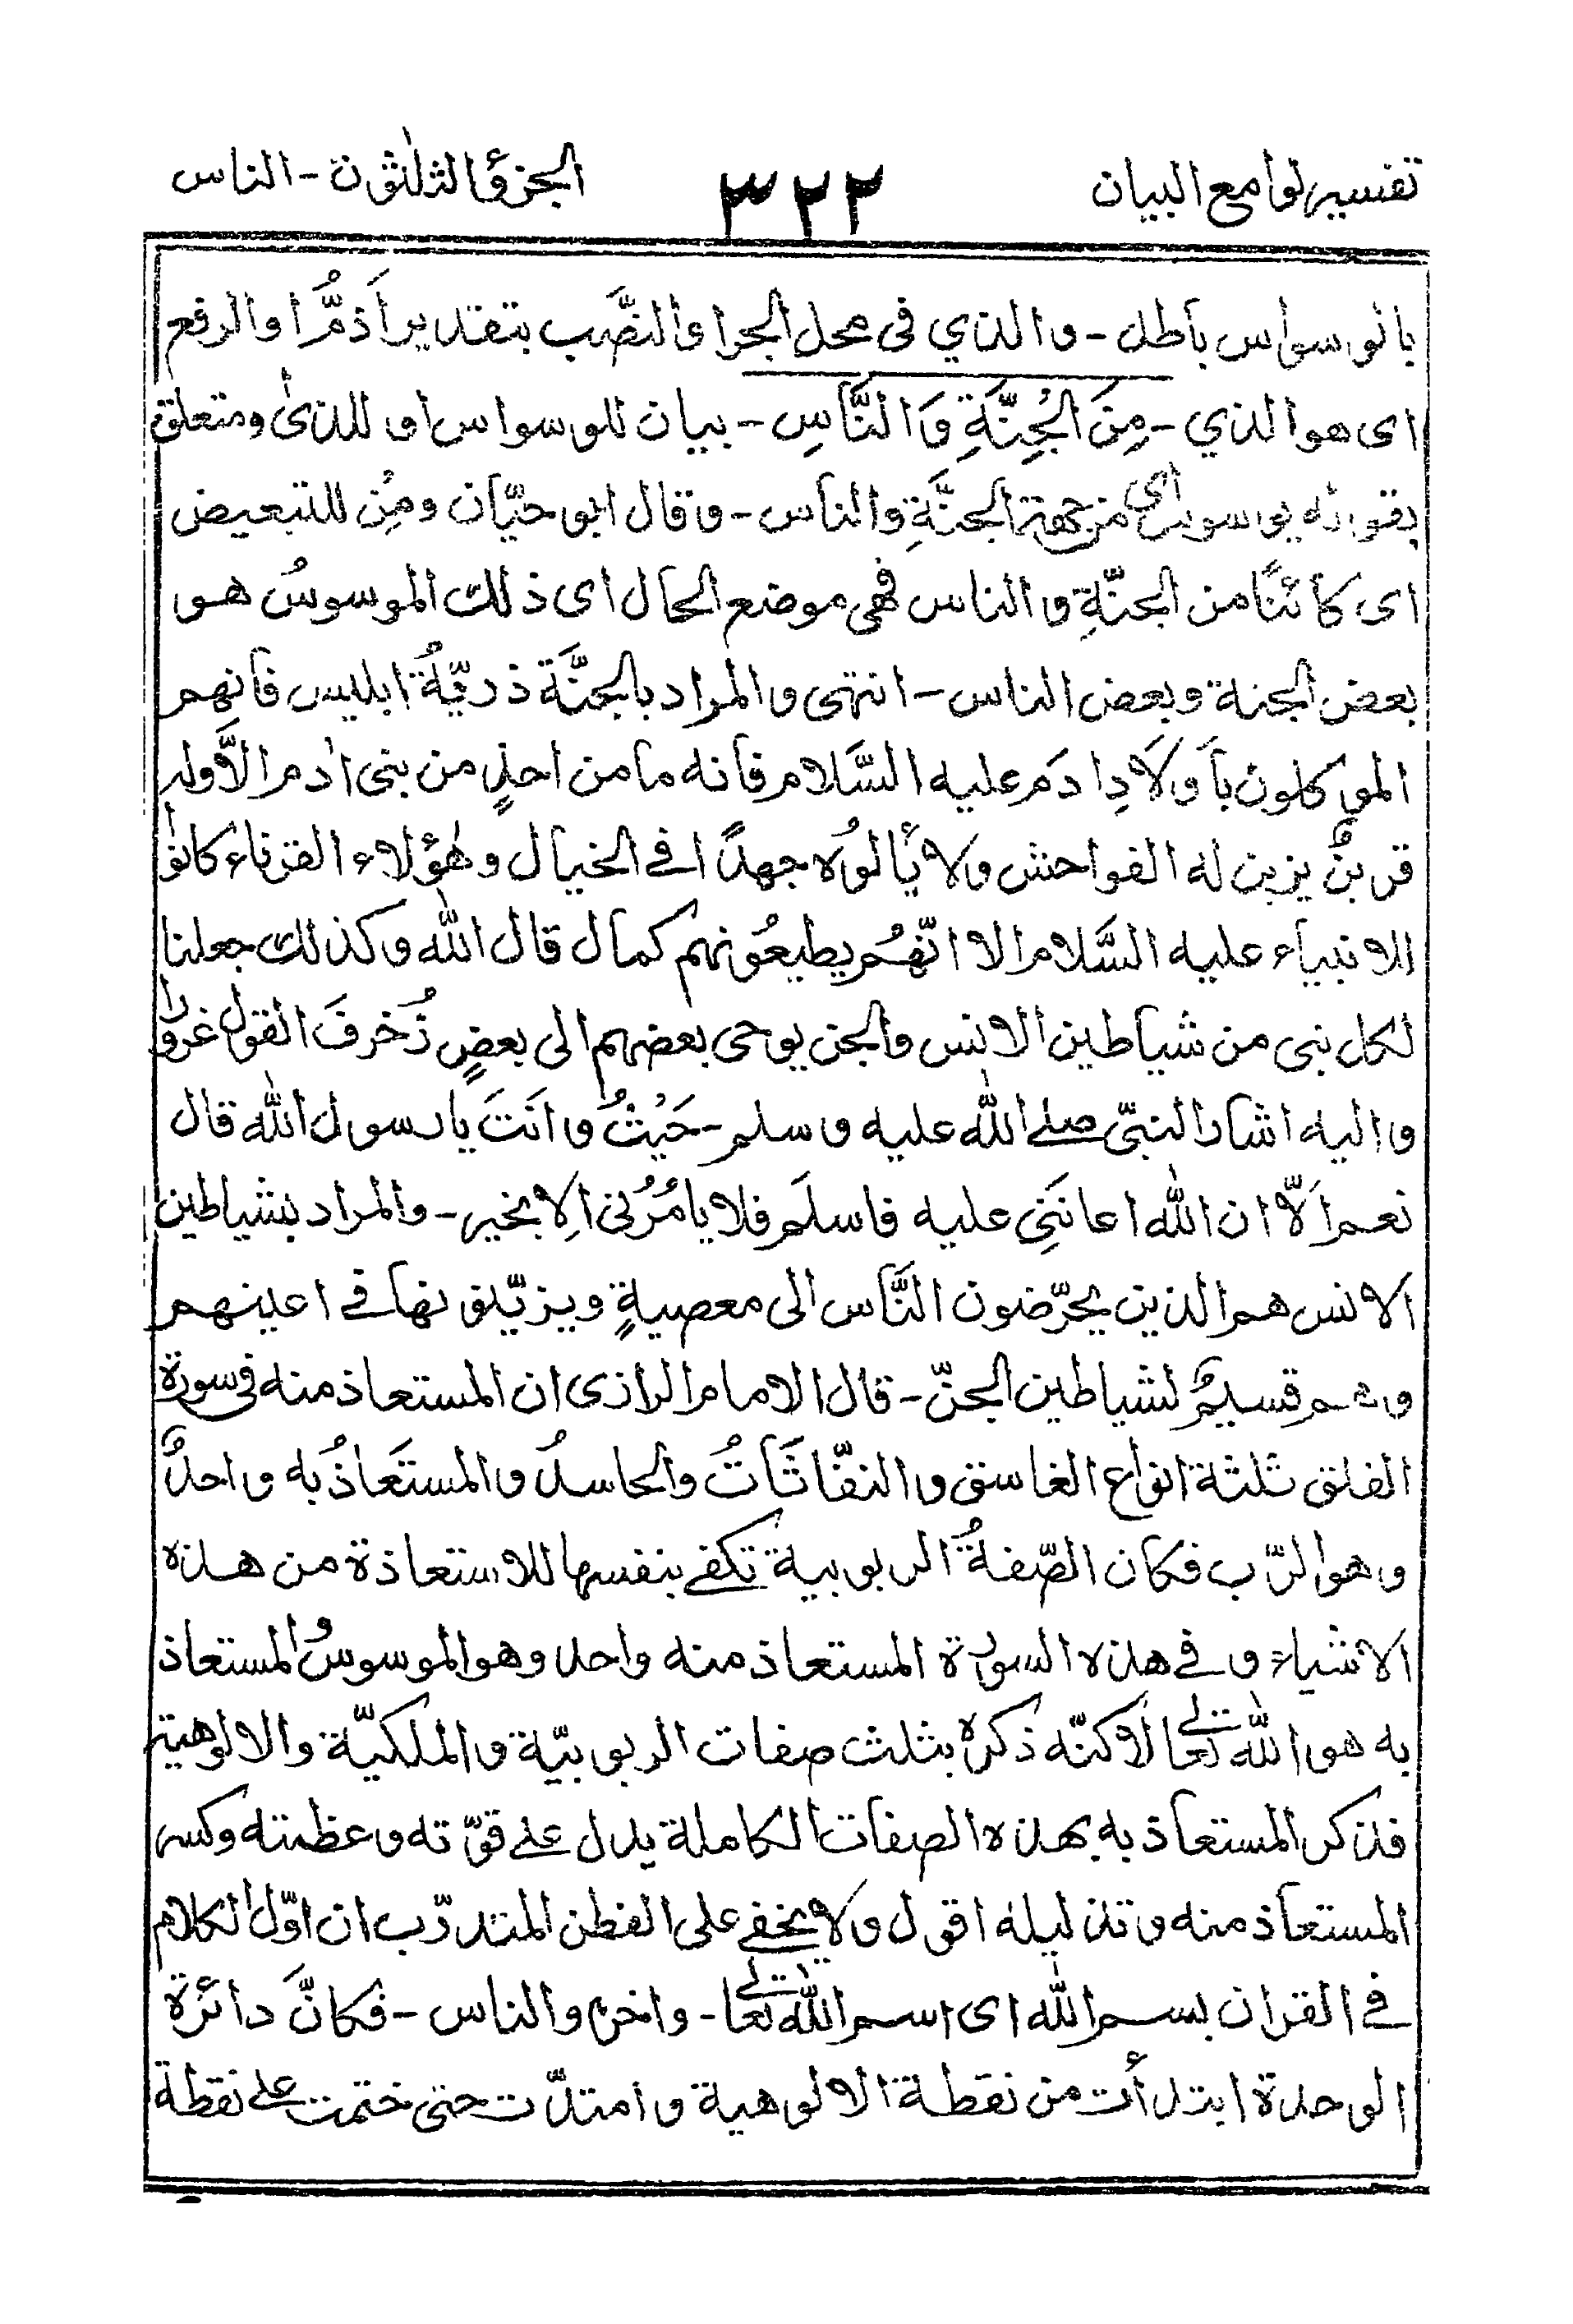 تفسير لوامع البيان ٣٢٢ الجزؤ الثلٰثون - الناس
بالوسواس باطل - والذي فى محل الجر او النصَّب بتقدير اَذمُّ او الرفع
اى هو الذي - مِنَ الجِنَّةِ وَالنَّاسِ - بيان للوسواس او للذىٰ ومتعلق
بقوله يوسوس اى من جهة الجنَّةِ والناس - وقال ابو حيّان ومِن للتبعيض
اى كائنًا من الجنّةِ والناس فهى موضع الحال اى ذلك الموسوسُ هو
بعض الجنة وبعض الناس - انتهى والمراد بالجنَّة ذريّةُ ابليس فانهم
الموكلون باَولَادِ ادَم عليه السَّلام فانه ما من احدٍ من بنى ادم الاَّوله
قرينٌ يزين له الفواحش ولا يَألوُه جهدًا فى الخيال وهٰؤلاء القرناء كانوا
للانبياء عليه السَّلام الا انّهُم يطيعُونهم كمال قال اللّٰه وكذلك جعلنا
لكل نبى من شياطين الانس والجن يوحى بعضهم الى بعضٍ زُخرفَ القول غرورا
واليه اشار النبىّ صلے اللّٰه عليه وسلم - حَيْثُ وانَتَ يا رسول اللّٰه قال
نعم اَلّا ان اللّٰه اعانَنِى عليه فاسلَم فلا يامُرُنى اِلا بخير - والمراد بشياطين
الانس هم الذين يحرّضون النَّاس الى معصيةٍ ويزيّنونها فى اعينهم
وهم قسيمٌ لشياطين الجنّ - قال الامام الرازى ان المستعاذ منه فى سورة
الفلق ثلثة انواع الغاسق والنفّاثَاتُ والحاسدُ والمستَعاذُ به واحدٌ
وهو الرّب فكان الصّفةُ الربوبية تكفے بنفسها للاستعاذة من هذه
الاشياء وفے هذه السورة المستعاذ منه واحد وهو الموسوسُ والمستعاذ
به هو اللّٰه تعالے الا كنّه ذكره بثلث صفات الربوبيّة والملكيّة والالوهية
فذكر المستعاذ به بهذه الصفات الكاملة يدل علے قوّته وعظمته وكسر
المستعاذ منه وتذليله اقول ولا يخفے على الفطن المتدرّب ان اوّل الكلام
فى القران بسم اللّٰه اى اسم اللّٰه تعالے - واٰخره والناس - فكانَّ دائرة
الوحدة ابتدأت من نقطة الالوهية وامتدّت حتى ختمت علے نقطة